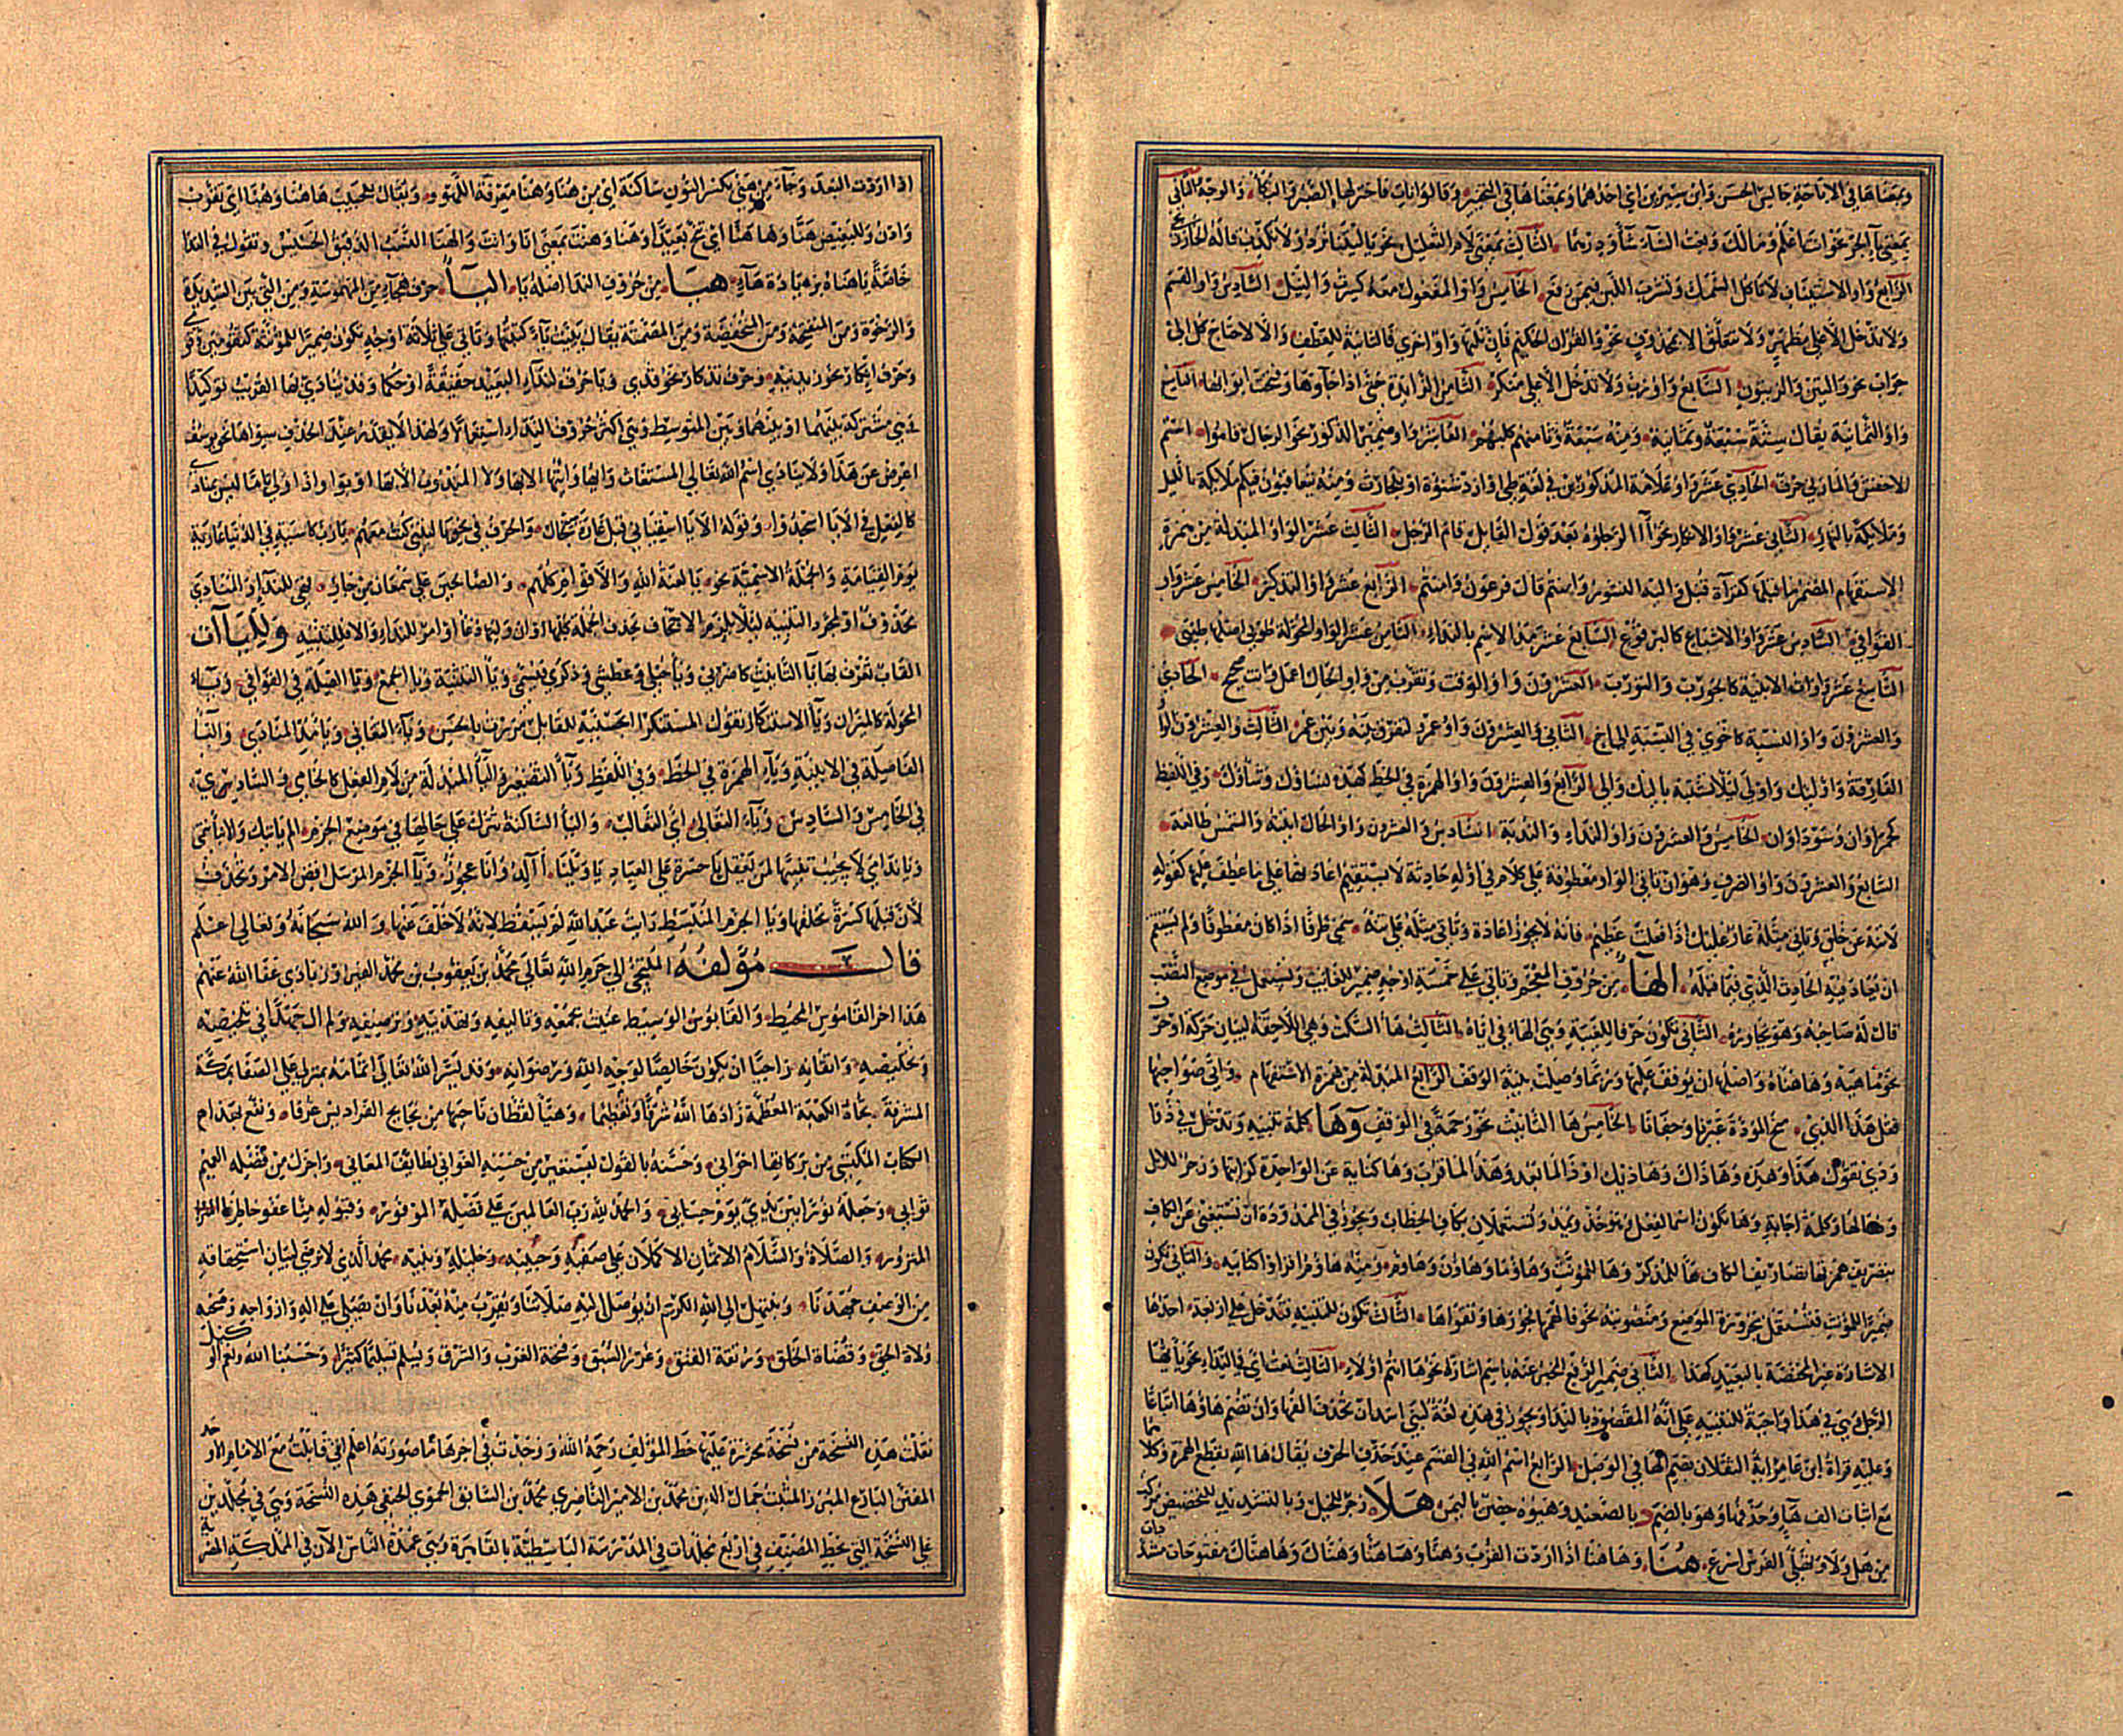 وبمعناها في الاباحة جالس الحسن وابن سيرين اي احدهما وبمعناها في التخيير وقالوا نأت فاختر لها الصبر والبكا والوجه الثاني
بمعنى بآ الجر نحو انت اعلم ومالك وبعت الشآء شأة ودرهما الثالث بمعنى لام التعليل نحو يا ليتنا نرد ولا نكذب قاله الخارزنجي
الرابع واو الاستيناف لا تاكل السمك وتشرب اللبن فيمن رفع الخامس واو المفعول معه كسرت والنيل السادس واو القسم
ولا تدخل الا على مظهر ولا تتعلق الا بمحذوف نحو والقران الحكيم فان تلتها واو اخرى فالثانية للعطف والا لاحتاج كل الى
جواب نحو والتين والزيتون السابع واو رب ولا تدخل الا على منكر الثامن الزايدة حتى اذا جآوها وفتحت ابوابها التاسع
واو الثمانية يقال ستة سبعة وثمانية ومنه سبعة وثامنهم كلبهم العاشر واو ضمير الذكور نحو الرجال قاموا اسم
للاخفش والمازني حرف الحادي عشر واو علامة المذكورين في لغة طي او ازد شنوة او بلحارث ومنه يتعاقبون فيكم ملايكة بالليل
وملايكة بالنهار الثاني عشر واو الانكار نحو االرجلوه بعد قول القايل قام الرجل الثالث عشر الواو المبدلة من همزة
الاستفهام المضموم ما قبلها كقرآة قنبل واليه النشور وامنتم قال فرعون وامنتم الرابع عشر واو التذكير الخامس عشر واو
القوافي السادس عشر واو الاشباع كالبرقوع السابع عشر مد الاسم بالنداء الثامن عشر الواو المحولة طوبى اصلها طيبى
التاسع عشر واوات الابنية كالجورب والتورب العشرون واو الوقت وتقرب من واو الحال اعمل وانت صحيح الحادي
والعشرون واو النسبة كاخوي في النسبة الى اخ الثاني والعشرون واو عمرو لتفرق بينه وبين عمر الثالث والعشرون الواو
الفارقة واو اوليك واولى ليلا يشتبه باليك والى الرابع والعشرون واو الهمزة في الخط كهذه نساوك وشاوك وفي اللفظ
كحمراوان وسوداوان الخامس والعشرون واو النداء والندبة السادس والعشرون واو الحال اتيته والشمس طالعة
السابع والعشرون واو الصرف وهو ان تاتي الواو معطوفة على كلام في اوله حادثة لا تستقيم اعادتها على ما عطف عليها كقوله
لا تنه عن خلق وتاتي مثله عار عليك اذا فعلت عظيم فانه لا يجوز اعادة وتاتي مثله على تنه سمي صرفا اذا كان معطوفا ولم يستقم
ان يعاد فيه الحادث الذي فيما قبله الهآ من حروف المعجم وتاتي على خمسة اوجه ضمير للغايب وتستعمل في موضع النصب
قال له صاحبه وهو يحاوره الثاني تكون حرفا للغيبة وهي الهاء في اياه الثالث هآ السكت وهي اللاحقة لبيان حركة او حرف
نحو ماهيه وهاهناه واصلها ان يوقف عليها وربما وصلت بنية الوقف الرابع المبدلة من همزة الاستفهام واتى صواحبها
فقلن هذا الذي منح المودة غيرنا وجفانا الخامس ها التانيث نحو رحمه في الوقف وها كلمة تنبيه وتدخل في ذا
وذي تقول هذا وهذه وهاذاك وهاذيك او ذا لما بعد وهذا لما قرب وها كناية عن الواحدة كرايتها وزجر للابل
ودعآ لها وكلمة اجابة وها تكون اسما لفعل وهو خذ وتمد وتستعملان بكاف الخطاب ويجوز في الممدودة ان تستغني عن الكاف
بتصريف همزتها تصاريف الكاف هآ للمذكر وها للمونث وهاوما وهاون وهاوم ومنه هاوم اقراوا كتابيه والثاني تكون
ضميرا للمونث فتستعمل مجرورة الموضع ومنصوبته نحو فالهمها فجورها وتقواها الثالث تكون للتنبيه فتدخل على اربعة احدها
الاشارة غير المختصة بالبعيد كهذا الثاني ضمير الرفع المخبر عنه باسم اشارة نحو ها انتم اولاء الثالث نعت اي في النداء نحو يا ايها
الرجل وهي في هذا واجبة للتنبيه على انه المقصود بالندا ويجوز في هذه لغة لبني اسد ان تحذف الفها وان تضم هاوها اتباعا
وعليه قراة ابن عامر ايه الثقلان بضم الها في الوصل الرابع اسم الله في القسم عند حذف الحرف يقال ها الله بقطع الهمزة وكلاهما
مع اثبات الف هآ وحذفها وهو بالضم بالصعيد وهيوه حصن باليمن هلا زجر للخيل وبالتشديد للتحضيض مركب
من هل ولا وتقبل الفرس اسرع هنا وهاهنا اذا اردت القرب وهنا وهاهنا وهناك وهاهناك مفتوحات مشددات
اذا اردت البعد وجآء من هني بكسر النون ساكنة اي من هنا وهنا معرفة اللهو ويقال للحبيب هاهنا وهنا اي تقرب
وادن وللبغيض هنا وها هنا اي تنح بعيدا وهنا وهنت بمعنى انا وانت والهنا النسب الدقيق الخسيس وتقول في الندا
خاصة يا هناه بزيادة هآء هيا من حروف الندا اصله يا اليآ حرف هجآء من المهموسة ومن التي بين الشديدة
والرخوة ومن المنفتحة ومن المنخفضة ومن المصمتة يقال يييت يآء كتبتها وتاتي على ثلاثة اوجه تكون ضميرا للمونثة كتقومين وقومي
وحرف انكار نحو ازيدنيه وحرف تذكار نحو قدي ويا حرف لندآء البعيد حقيقة او حكما وقد ينادى بها القريب توكيدا
وهي مشتركة بينهما او بينهما وبين المتوسط وهي اكثر حروف النداء استعمالا ولهذا لا يقدر عند الحذف سواها نحو يوسف
اعرض عن هذا ولا ينادى اسم الله تعالى والمستغاث وايها وايتها الا بها ولا المندوب الا بها او بوا واذا ولي يا ما ليس بمنادى
كالفعل في الا يا اسجدوا وقوله الا يا اسقياني قبل غارة سنجال والحرف في نحو يا ليتني كنت معهم يا رب كاسية في الدنيا عارية
يوم القيامة والجملة الاسمية نحو يا لعنة الله والاقوام كلهم والصالحين على سمعان من جار فهي للندآء والمنادى
محذوف او لمجرد التنبيه ليلا يلزم الاجحاف بحذف الجملة كلها او ان وليها دعآ او امر للنداء والا فللتنبيه ولليآات
القاب تعرف بها يآ التانيث كاضربي ويآ حبلى وعطشى وذكرى وسيمى ويآ التثنية ويآ الجمع ويآ الصلة في القوافي ويآء
المحولة كالميزان ويآ الاستنكار تقول المستنكر ابحسنيه للقايل مررت بالحسن ويآء التعاني ويآ مد المنادي واليآ
الفاصلة في الابنية ويآء الهمزة في الخط وفي اللفظ ويآ التصغير واليآ المبدلة من لام الفعل كالخامي والسادي
في الخامس والسادس ويآء الثعالي اي الثعالب واليآ الساكنة تترك على حالها في موضع الجزم الم ياتيك والانبآ تنمي
ويا نداي لا يجيب تنبيها لمن يعقل يا حسرة على العباد يا ويلتا أآلد وانا عجوز ويآ الجزم المرسل اقض الامر وتحذف
لان قبلها كسرة تخلفها ويا الجزم المنبسط رايت عبدي الله لم تسقط لانه لا خلف عنها والله سبحانه وتعالى اعلم
قال مولفه الملتجي الى حرم الله تعالى محمد بن يعقوب بن محمد الفيروزابادي عفا الله عنهم
هذا اخر القاموس المحيط والقابوس الوسيط عنيت بجمعه وتاليفه وتهذيبه وترصيفه ولم ال جهدا في تلخيصه
وتخليصه واتقانه راجيا ان يكون خالصا لوجه الله ورضوانه وقد يسر الله تعالى اتمامه بمنزلي على الصفا بمكة
المشرفة تجاه الكعبة المعظمة زادها الله شرفا وتعظيما وهيأ لقطان باحتها من بحابح الفراديس غرفا ونفع بهذا
الكتاب المكتسي من بركاتها اخواني وحسنه بالقبول ليستعير من حسنه الغواني لطايف المعاني واجزل من فضله العميم
ثوابي وجعله نورا بين يدي يوم حسابي والحمد لله رب العالمين على فضله الموفور وقبوله منا عفو خاطرنا
المنزور والصلاة والسلام الاتمان الاكملان على صفيه وحبيبه وخليله ونبيه محمد الذي لا
من الوهن جهدنا ونبتهل الى الله الكريم ان يوصل اليه صلاتنا ويقرب منه بعدنا وان يصلي على اله وازواجه وصحبه
ولاة الحق وقضاة الخلق ورتقة الفتق وغرر السبق وفتحة الغرب والشرق ويسلم تسليما كثيرا وحسبنا الله ونعم الوكيل
نقلت هذه النسخة من نسخة محررة عليها خط المؤلف رحمه الله ووجدت في اخرها ما صورته اعلم اني قابلت مع الامام الاوحد
المفنن البارع المبرز المثبت جمال الدين محمد بن الامير الناصري محمد بن السابق الحموي الحنفي هذه النسخة وهي في مجلدين
على النسخة التي بخط المصنف في اربع مجلدات في المدرسة الباسطية بالقاهرة وهي عمدة الناس الآن في المملكة المصرية